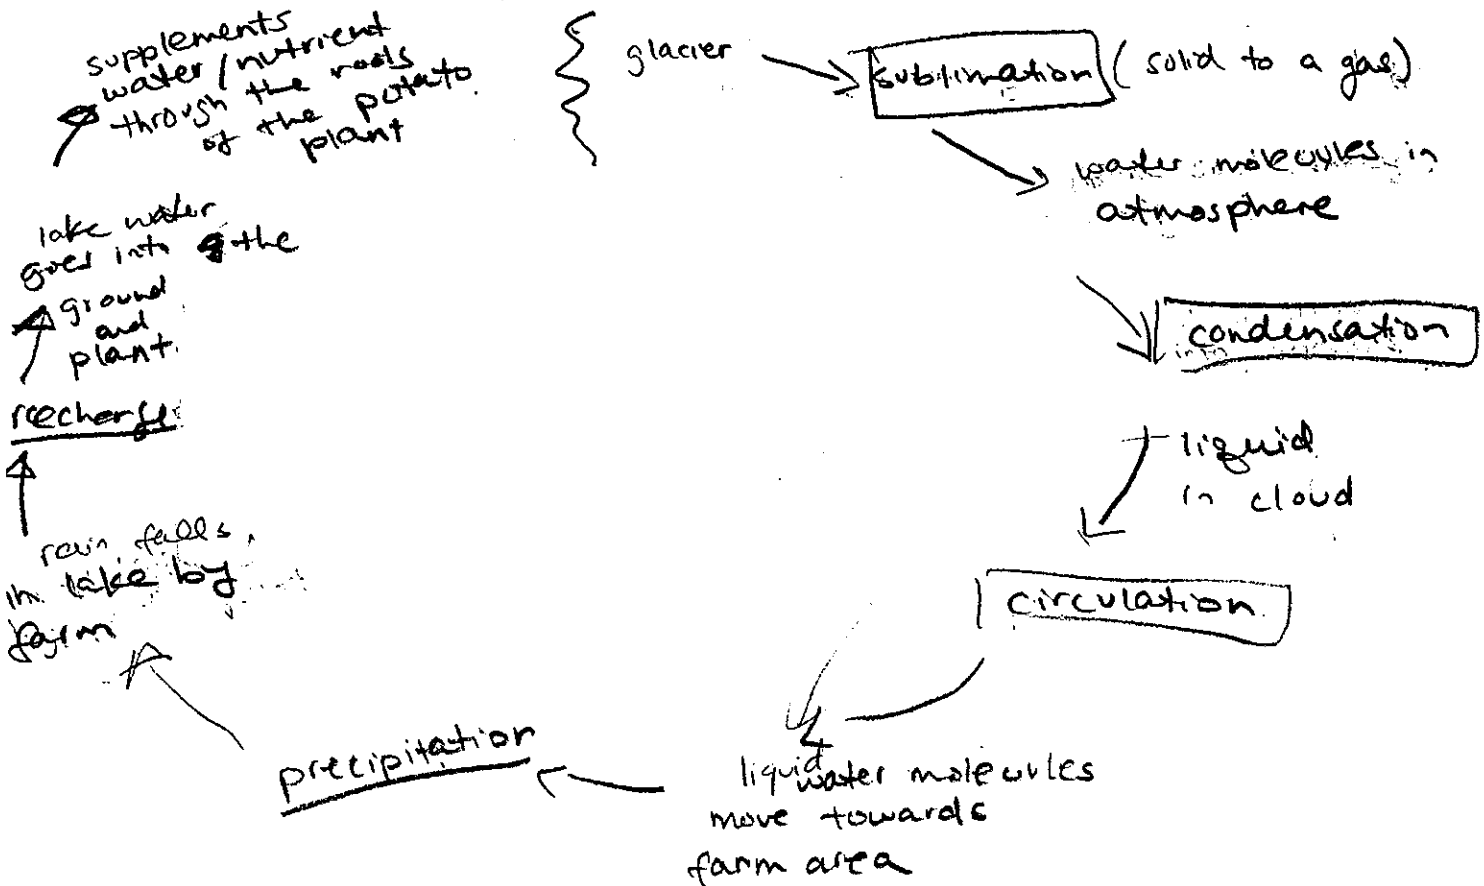 glacier
sublimation (solid to a gas)
water molecules in
atmosphere
condensation
liquid
in cloud
circulation
liquid water molecules
move towards
farm area
precipitation
rain falls
in lake by
farm
recharge
lake water
goes into the
ground
and
plant.
supplements
water/nutrient
through the roots
of the potato
plant